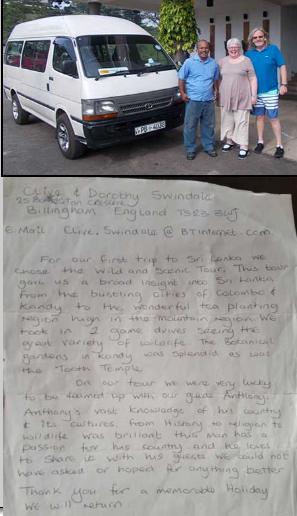 PB 4038
Clive & Dorothy Swindale
25 Crescent
Billingham, England TS23
E.Mail Clive.Swindale@BTinternet.com
For our first trip to Sri Lanka we
chose the Wild and Scenic Tour. This tour
gave us a broad insight into Sri Lanka
from the bustling cities of Colombo &
Kandy to the wonderful tea planting
region high in the mountain region. We
took in 2 game drives seeing the
great variety of wildlife. The Botanical
gardens in Kandy was splendid as was
the Tooth Temple.
On our tour we were very lucky
to be teamed up with our guide Anthony.
Anthony's vast knowledge of his country
& its cultures, from History to religion to
wildlife was brilliant. This man has a
passion for his country and he loves
to share it with his guests. We could not
have asked or hoped for anything better
Thank you for a memorable Holiday
We will return